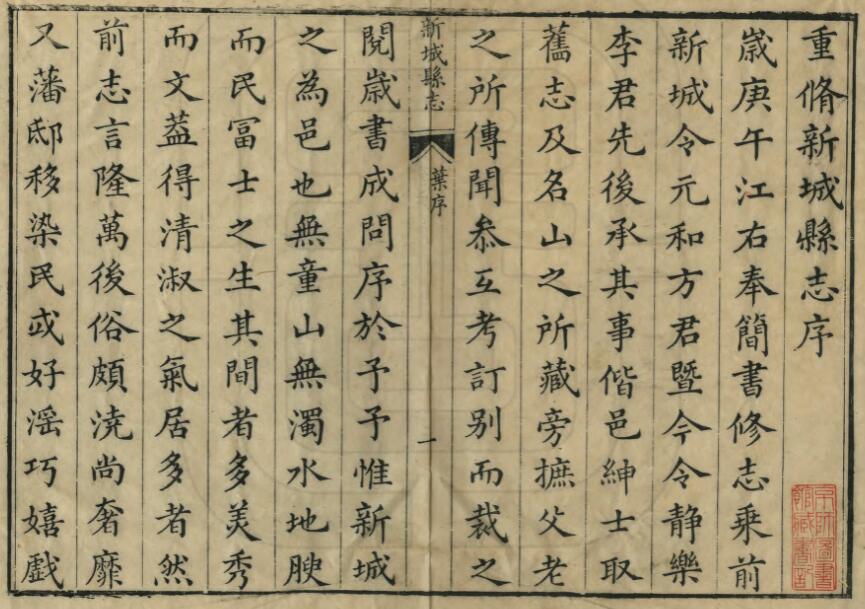 重脩新城縣志序
歲庚午江右奉簡書修志乘前
新城令元和方君暨今令静樂
李君先後承其事偕邑紳士取
舊志及名山之所藏旁摭父老
之所傳聞叅互考訂别而裁之
新城縣志
葉序
一
閱歲書成問序於予予惟新城
之為邑也無童山無濁水地腴
而民冨士之生其間者多美秀
而文葢得清淑之氣居多者然
前志言隆萬後俗頗澆尚奢靡
又藩邸移染民或好滛巧嬉戱
京師圖書
館藏書記